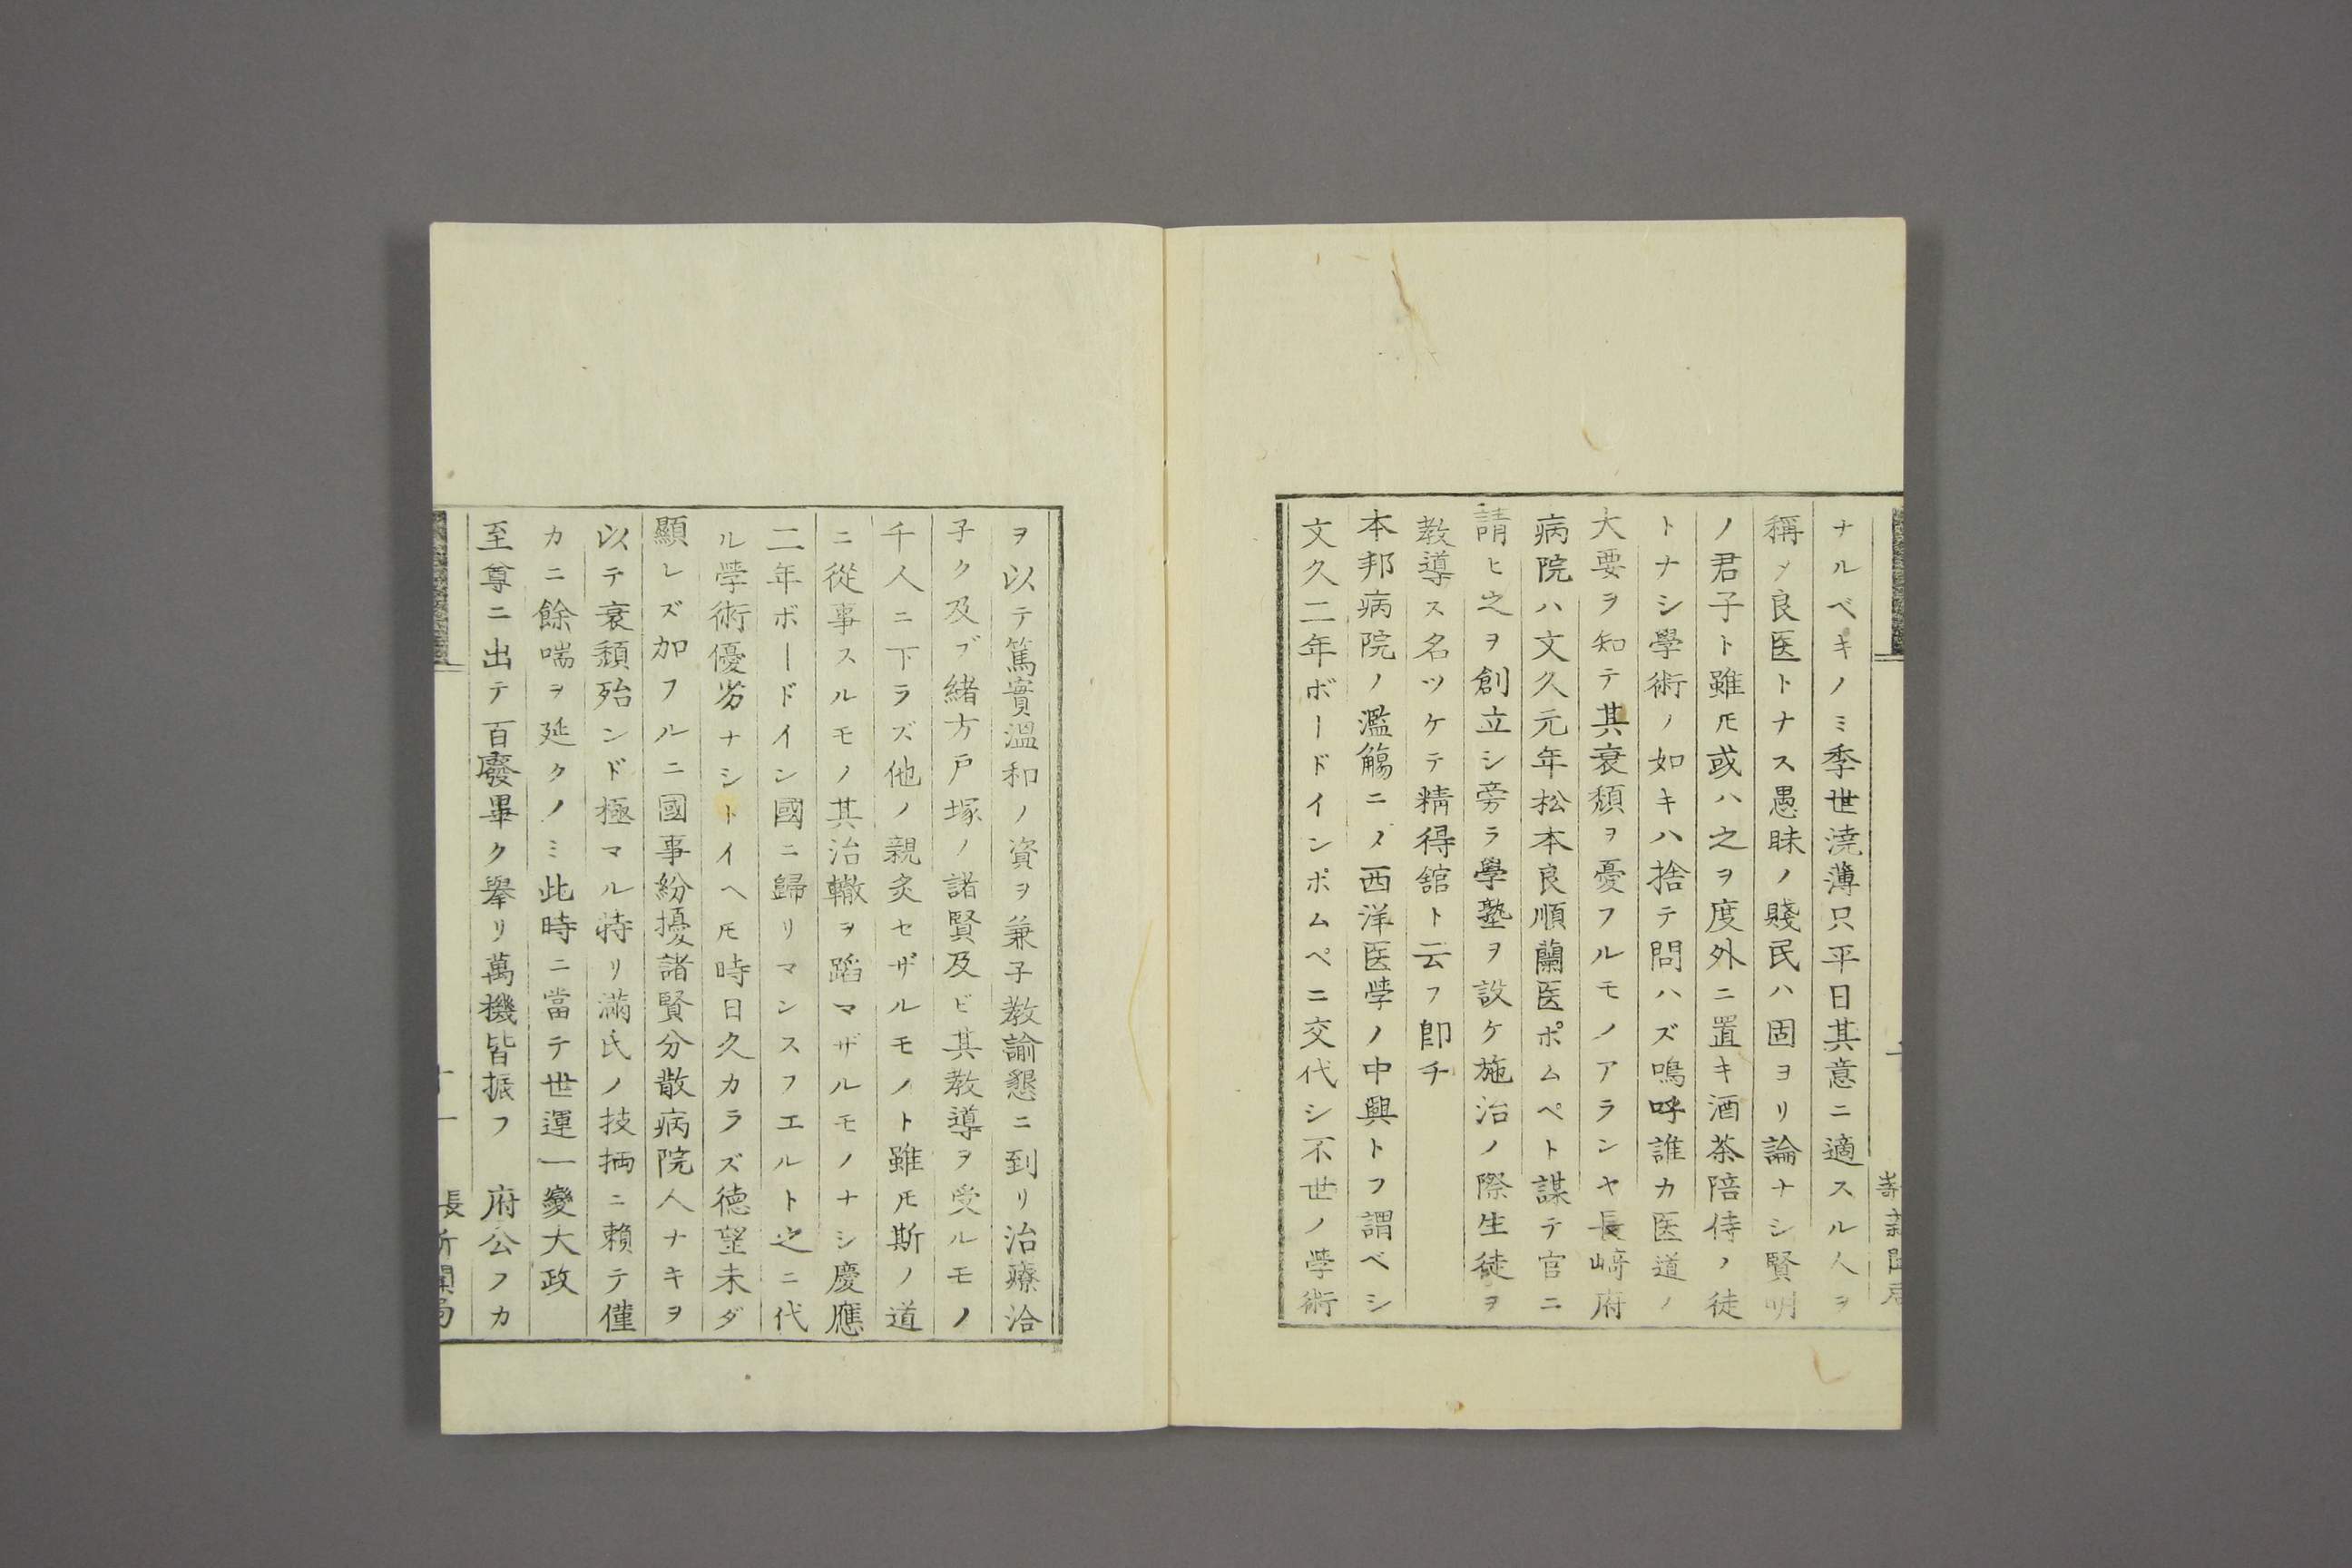 ナルベキノミ季世澆薄只平日其意ニ適スル人ヲ
稱〆良医トナス愚昧ノ賤民ハ固ヨリ論ナシ賢明
ノ君子ト雖𪜈或ハ之ヲ度外ニ置キ酒茶陪侍ノ徒
トナシ學術ノ如キハ捨テ問ハズ鳴呼誰カ医道ノ
大要ヲ知テ其衰頽ヲ憂フルモノアランヤ長﨑府
病院ハ文久元年松本良順蘭医ポムペト謀テ官ニ
請ヒ之ヲ創立シ旁ラ學塾ヲ設ケ施治ノ際生徒ヲ
教導ス名ツケテ精得舘ト云フ卽チ
本邦病院ノ濫觴ニ〆西洋医学ノ中興トフ謂ベシ
文久二年ボードインポムペニ交代シ不世ノ学術
ヲ以テ篤實溫和ノ資ヲ兼子教諭懇ニ到リ治療洽
子ク及ブ緒方戸塚ノ諸賢及ビ其教導ヲ受ルモノ
千人ニ下ラズ他ノ親炙セザルモノト雖𪜈斯ノ道
ニ從事スルモノ其治轍ヲ蹈マザルモノナシ慶應
二年ボードイン國ニ歸リマンスフエルト之ニ代
ル学術優劣ナシトイヘ𪜈時日久カラズ德望未ダ
顯レズ加フルニ國事紛擾諸賢分散病院人ナキヲ
以テ衰頽殆ンド極マル特リ滿氏ノ技抦ニ賴テ僅
カニ餘喘ヲ延クノミ此時ニ當テ世運一變大政
至尊ニ出テ百廢畢ク擧リ萬機皆振フ　府公フカ